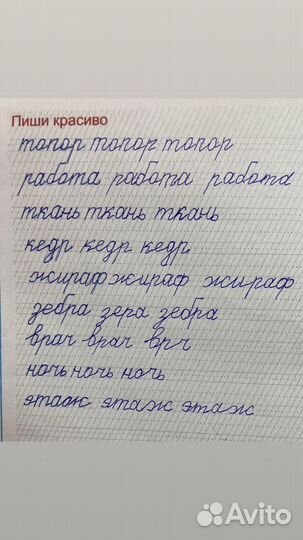 Пиши красиво
топор топор топор
работа работа работа
ткань ткань ткань
кедр кедр кедр
жираф жираф жираф
зебра зера зебра
врач врач врч
ночь ночь ночь
этаж этаж этаж
Avito